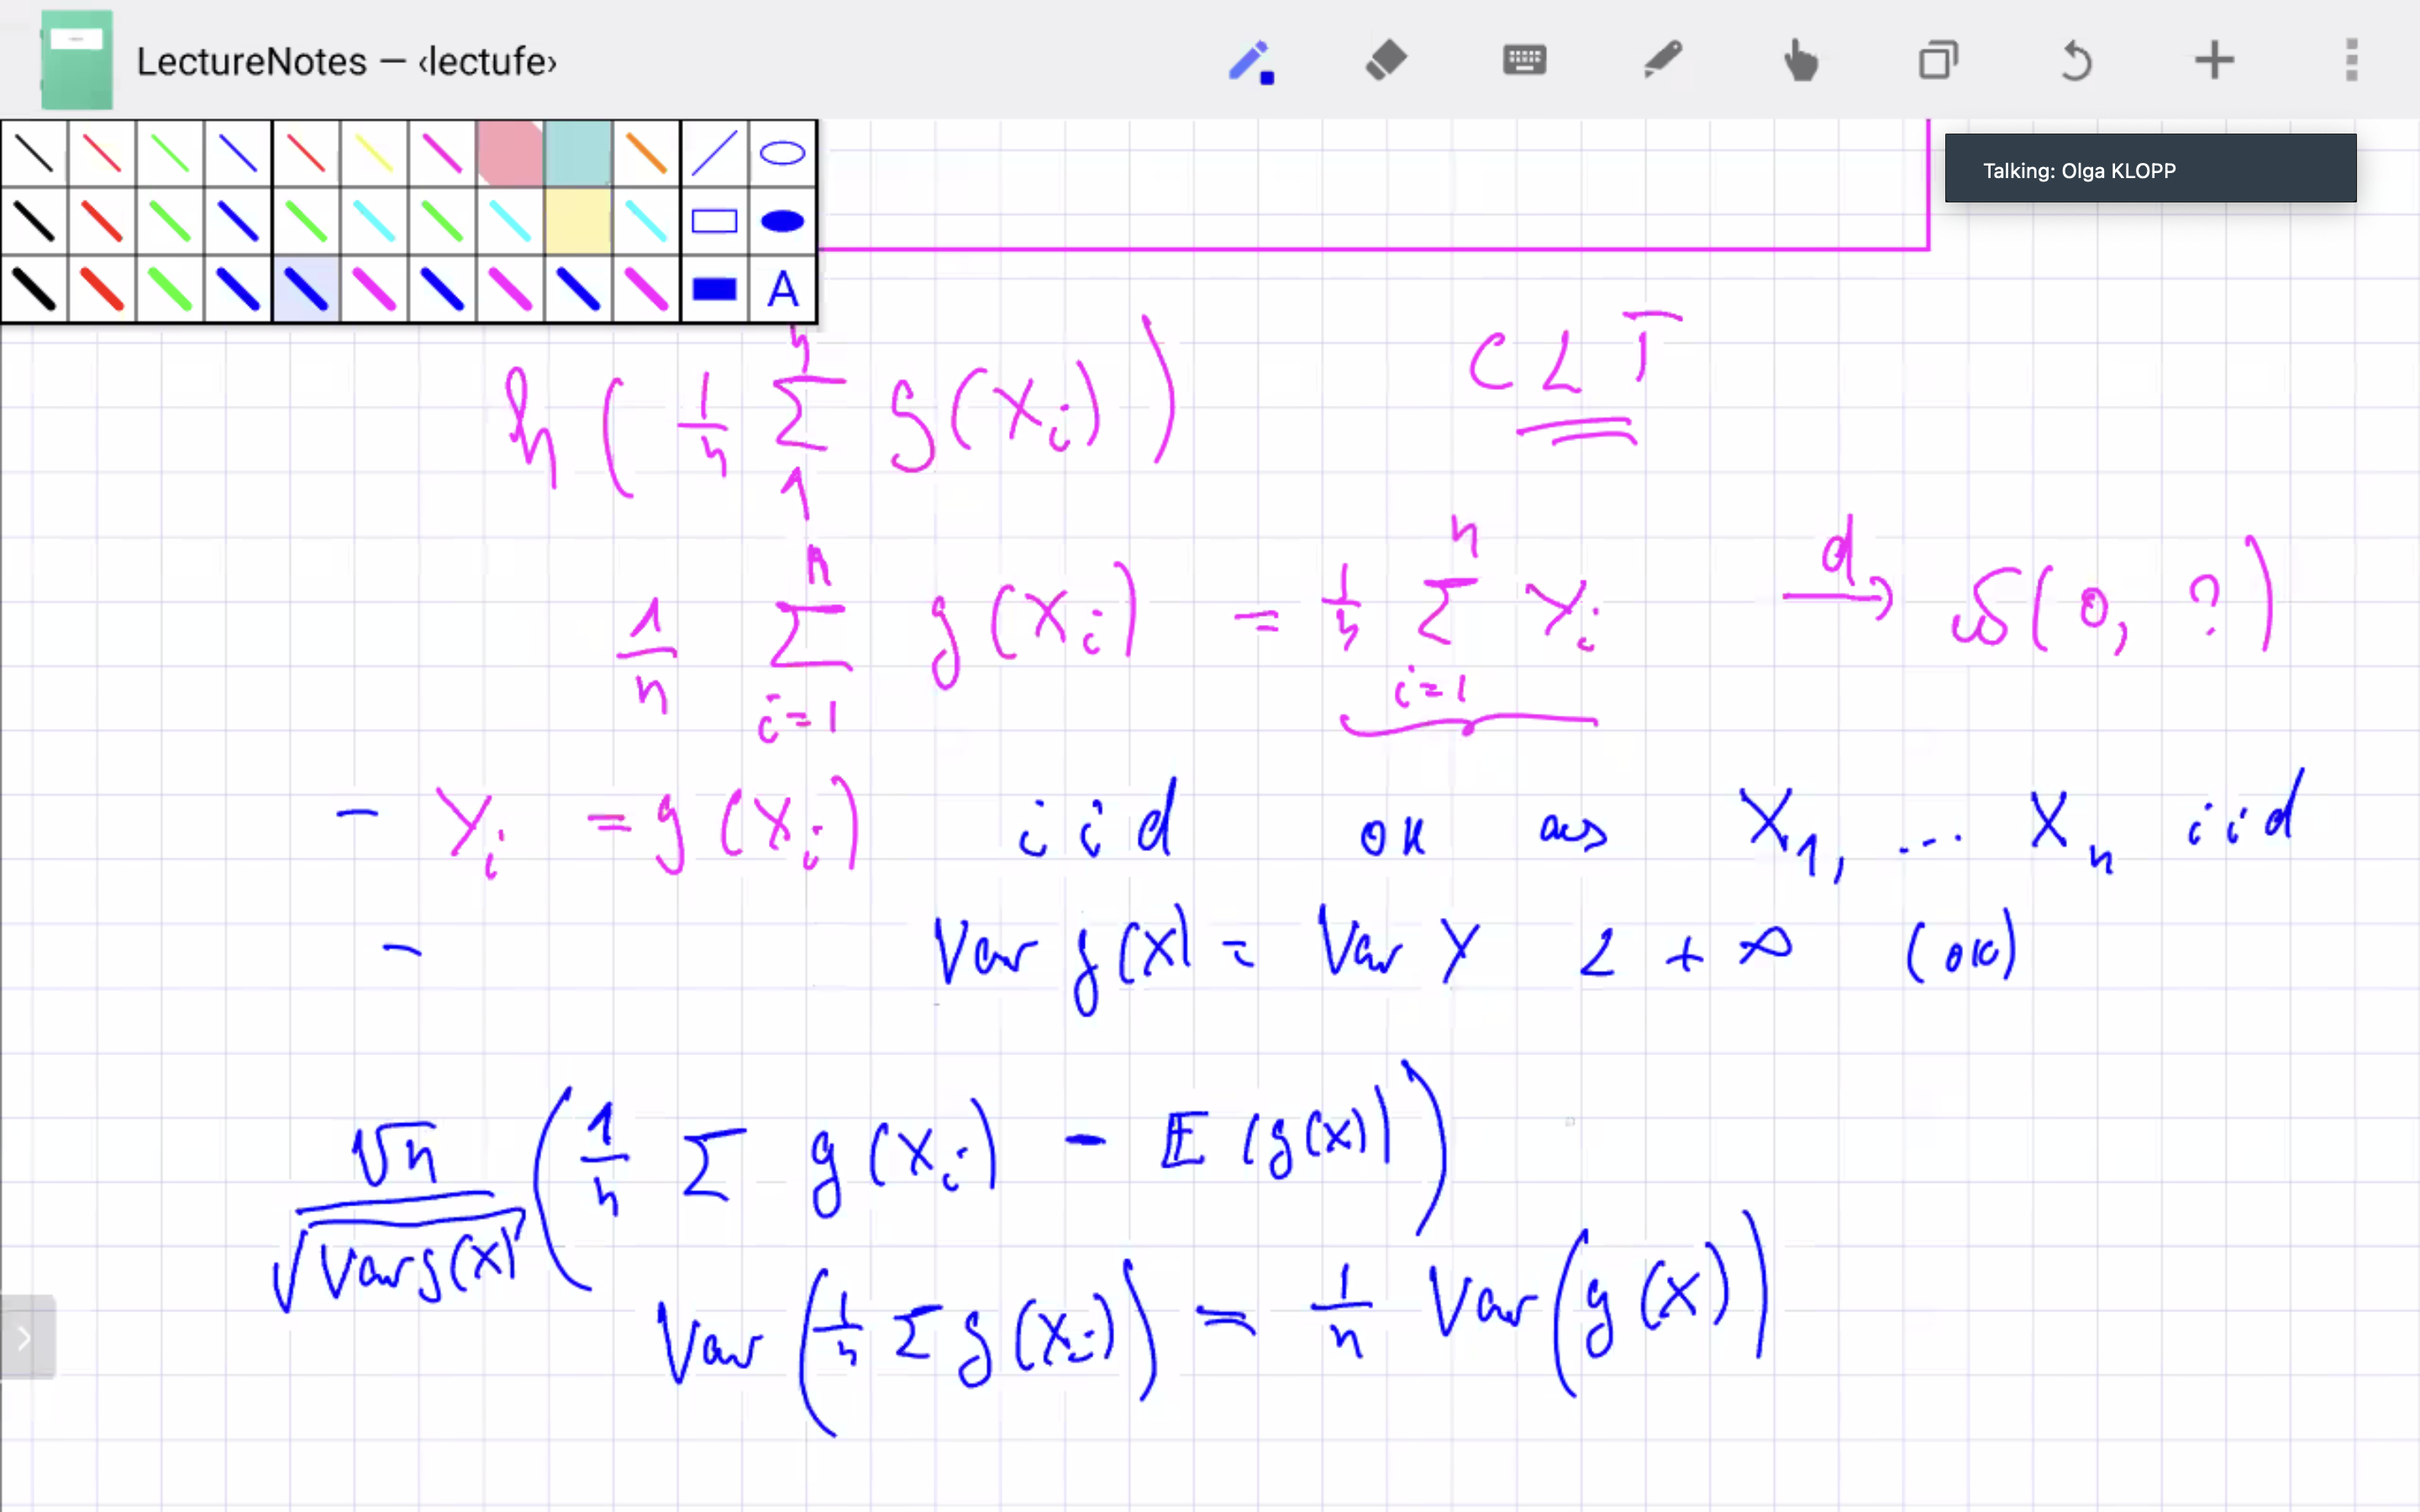 LectureNotes — ‹lectufe›
Talking: Olga KLOPP
A
h ( 1/n Σ_1^n g(X_i) ) CLT
1/n Σ_{i=1}^n g(X_i) = 1/n Σ_{i=1}^n Y_i →^d N(0, ?)
- Y_i = g(X_i) iid ok as X_1, ... X_n iid
- Var g(X) = Var Y < +∞ (ok)
√n / √(Var g(X)) ( 1/n Σ g(X_i) - 𝔼(g(X)) )
Var ( 1/n Σ g(X_i) ) = 1/n Var ( g(X) )